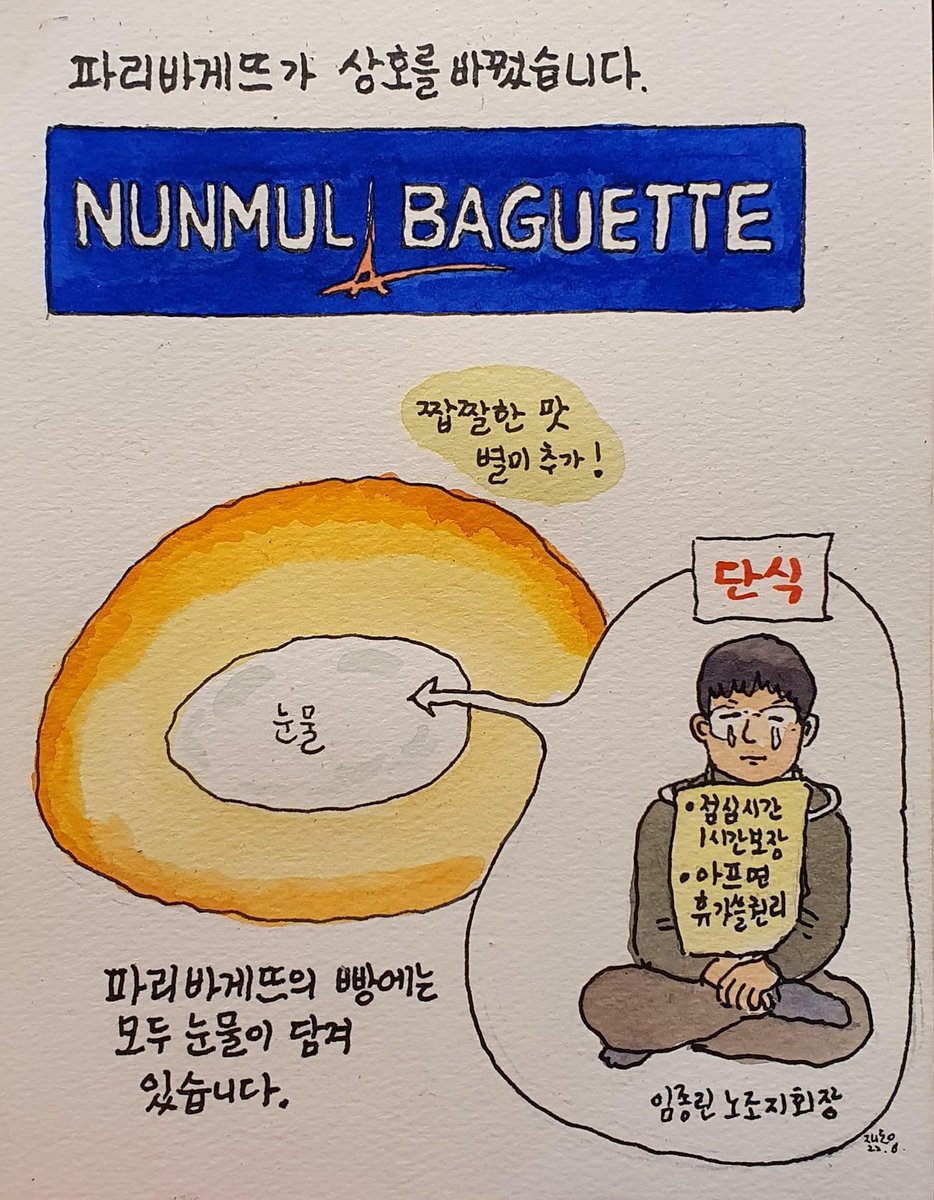 파리바게뜨가 상호를 바꿨습니다.
NUNMUL BAGUETTE
짭짤한 맛
별미 추가!
단식
눈물
• 점심시간
1시간 보장
• 아프면
휴가쓸권리
파리바게뜨의 빵에는
모두 눈물이 담겨
있습니다.
임종린 노조지회장